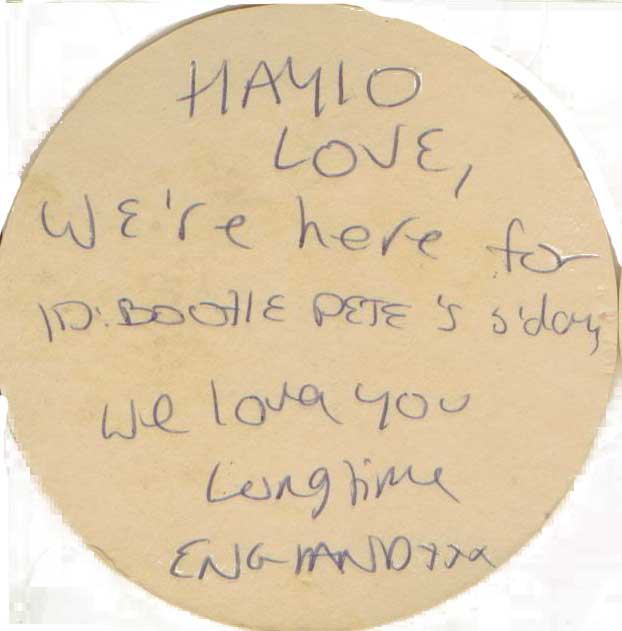 HAYLO
LOVE,
WE're here for
BOOTLE PETE's
we love you
Long time
ENGLAND xxx